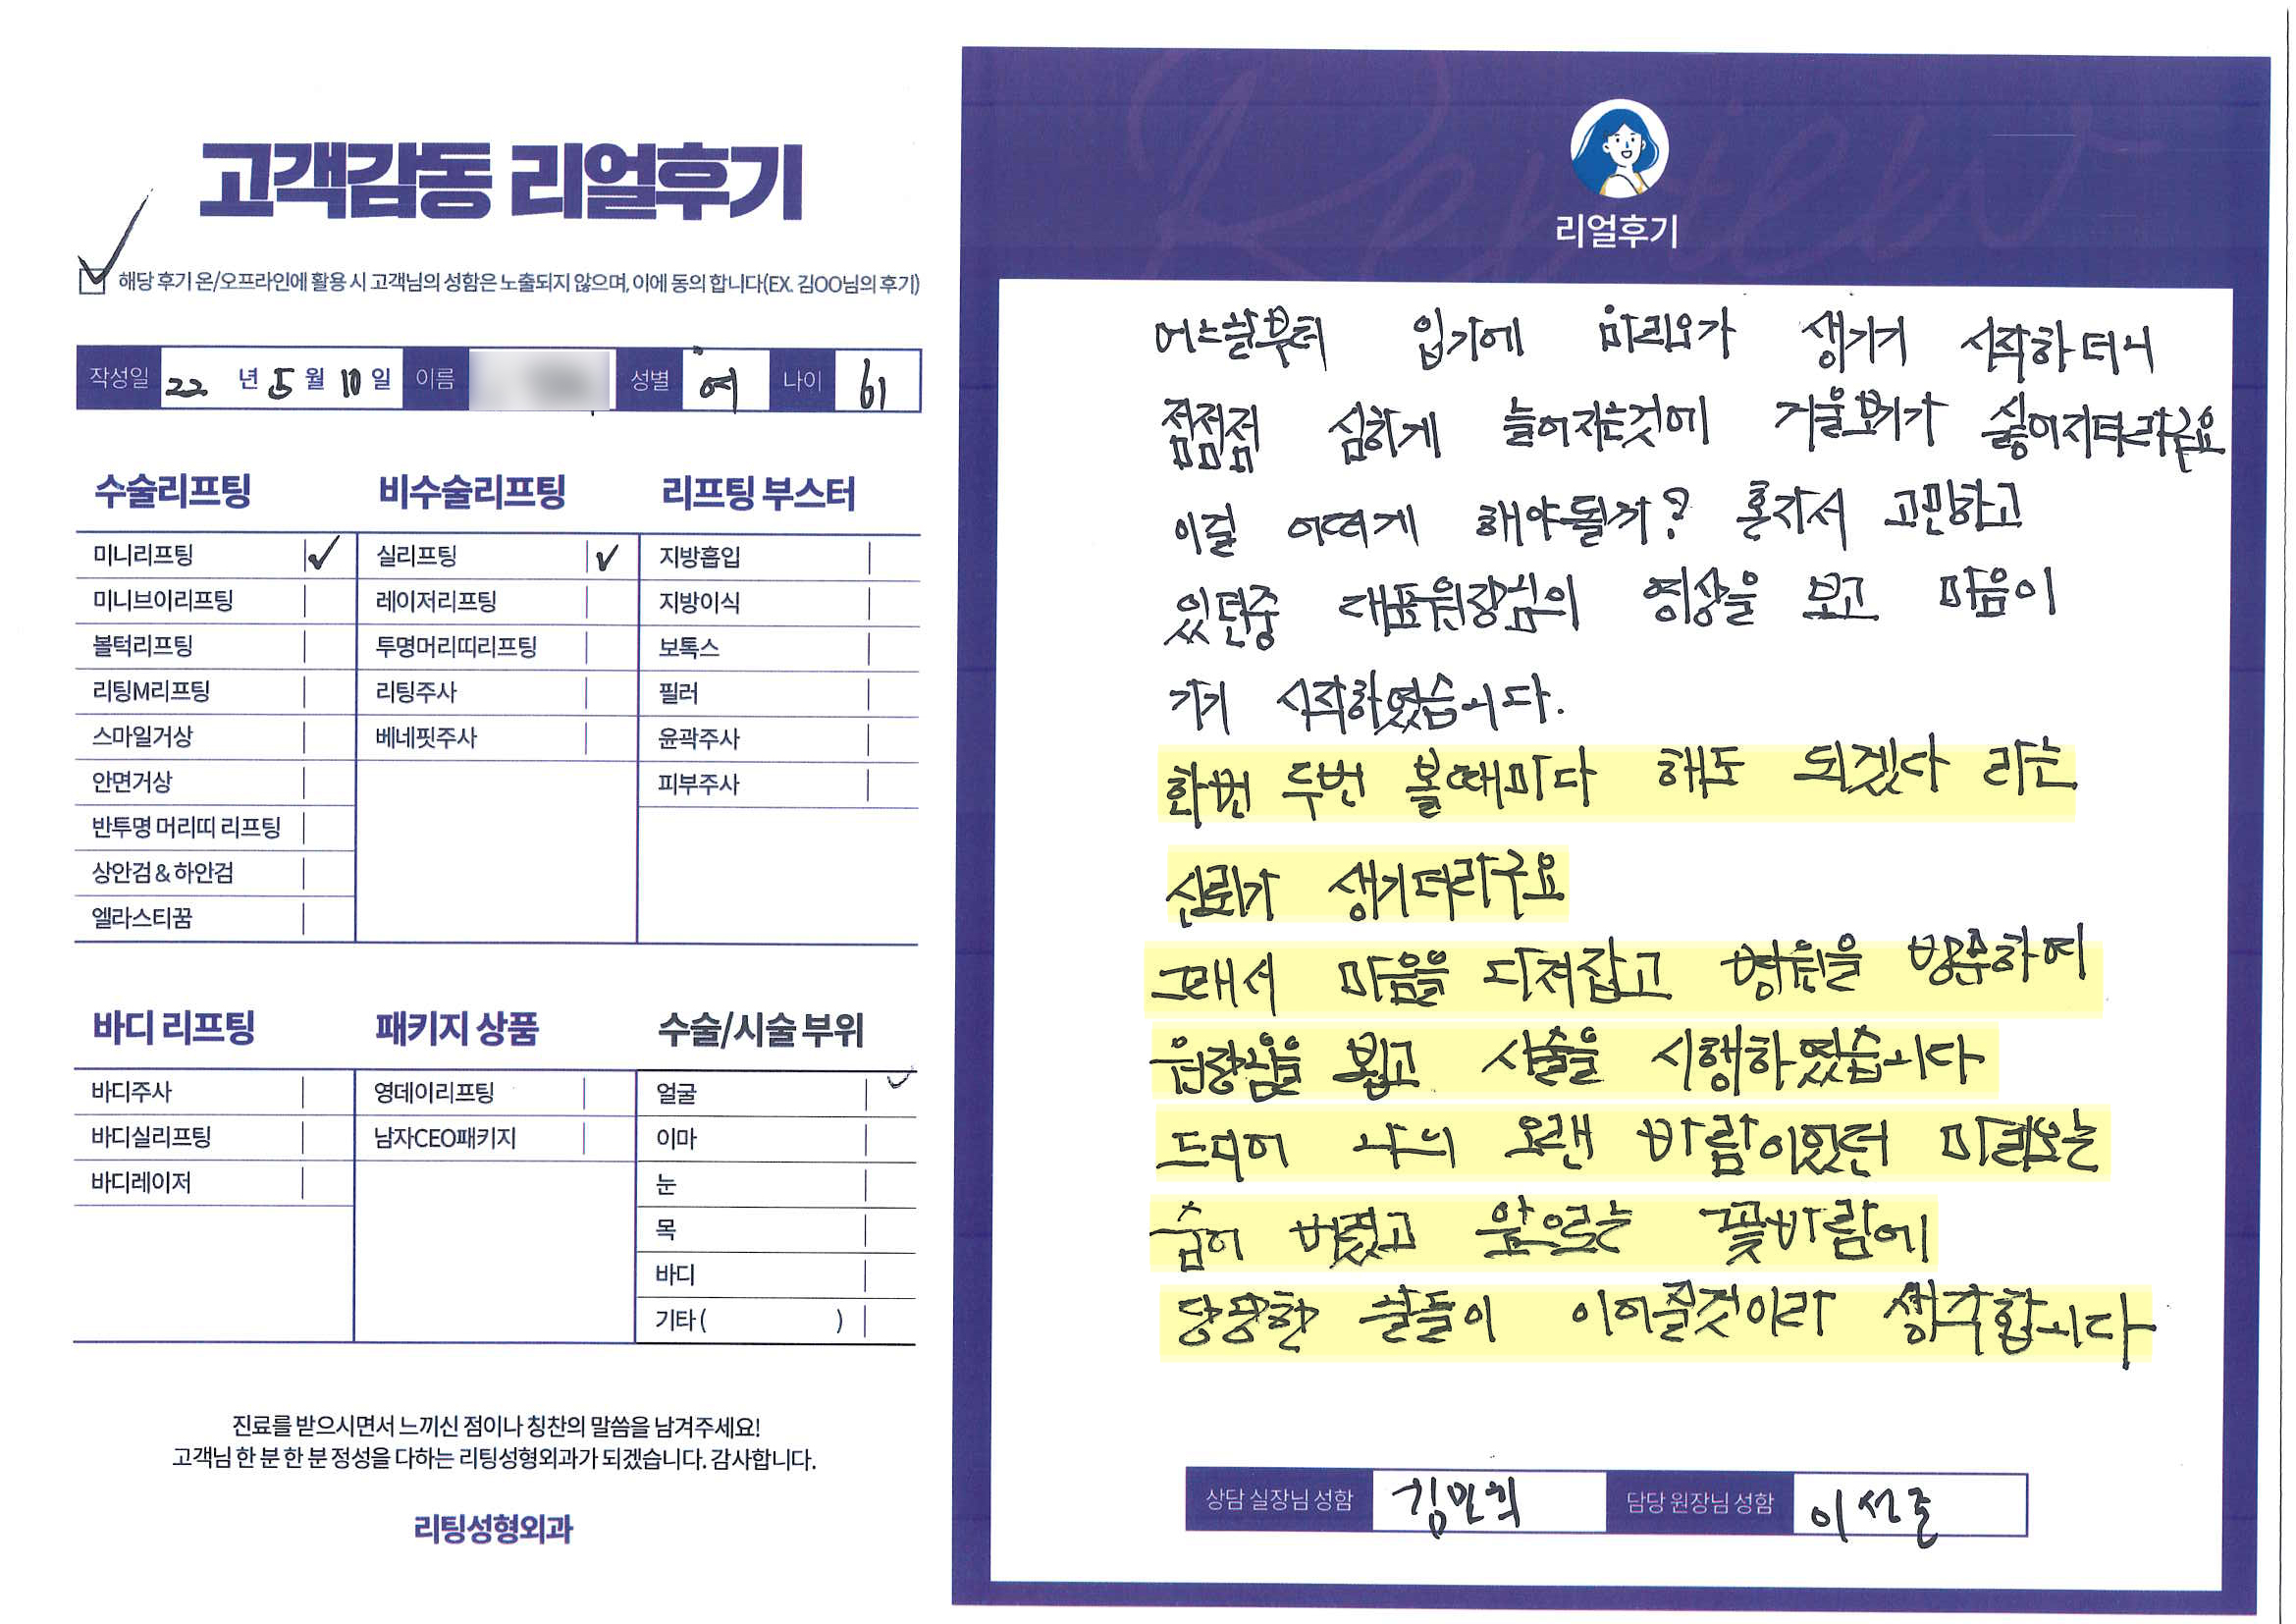 고객감동 리얼후기
해당 후기 온/오프라인에 활용 시 고객님의 성함은 노출되지 않으며, 이에 동의 합니다(EX. 김OO님의 후기)
작성일 22 년 5 월 10 일 이름 성별 여 나이 61
수술리프팅
미니리프팅
미니브이리프팅
볼턱리프팅
리팅M리프팅
스마일거상
안면거상
반투명 머리띠 리프팅
상안검 & 하안검
엘라스티꿈
비수술리프팅
실리프팅
레이저리프팅
투명머리띠리프팅
리팅주사
베네핏주사
리프팅 부스터
지방흡입
지방이식
보톡스
필러
윤곽주사
피부주사
바디 리프팅
바디주사
바디실리프팅
바디레이저
패키지 상품
영데이리프팅
남자CEO패키지
수술/시술 부위
얼굴
이마
눈
목
바디
기타 ( )
진료를 받으시면서 느끼신 점이나 칭찬의 말씀을 남겨주세요!
고객님 한 분 한 분 정성을 다하는 리팅성형외과가 되겠습니다. 감사합니다.
리팅성형외과
Review
리얼후기
어느날부터 입가에 마리오가 생기기 시작하더니
점점점 심하게 늘어지는것에 거울보기가 싫어지더라구요
이걸 어떻게 해야될까? 혼자서 고민하고
있던중 대표원장님의 영상을 보고 마음이
가기 시작하였습니다.
한번 두번 볼때마다 해도 되겠다 라는
신뢰가 생기더라구요
그래서 마음을 다져잡고 병원을 방문하여
원장님을 뵙고 시술을 시행하였습니다
드디어 나의 오랜 바람이었던 마리오는
숨어 버렸고 앞으로는 꽃바람에
당당한 날들이 이어줄것이라 생각합니다
상담 실장님 성함 김민희 담당 원장님 성함 이선준